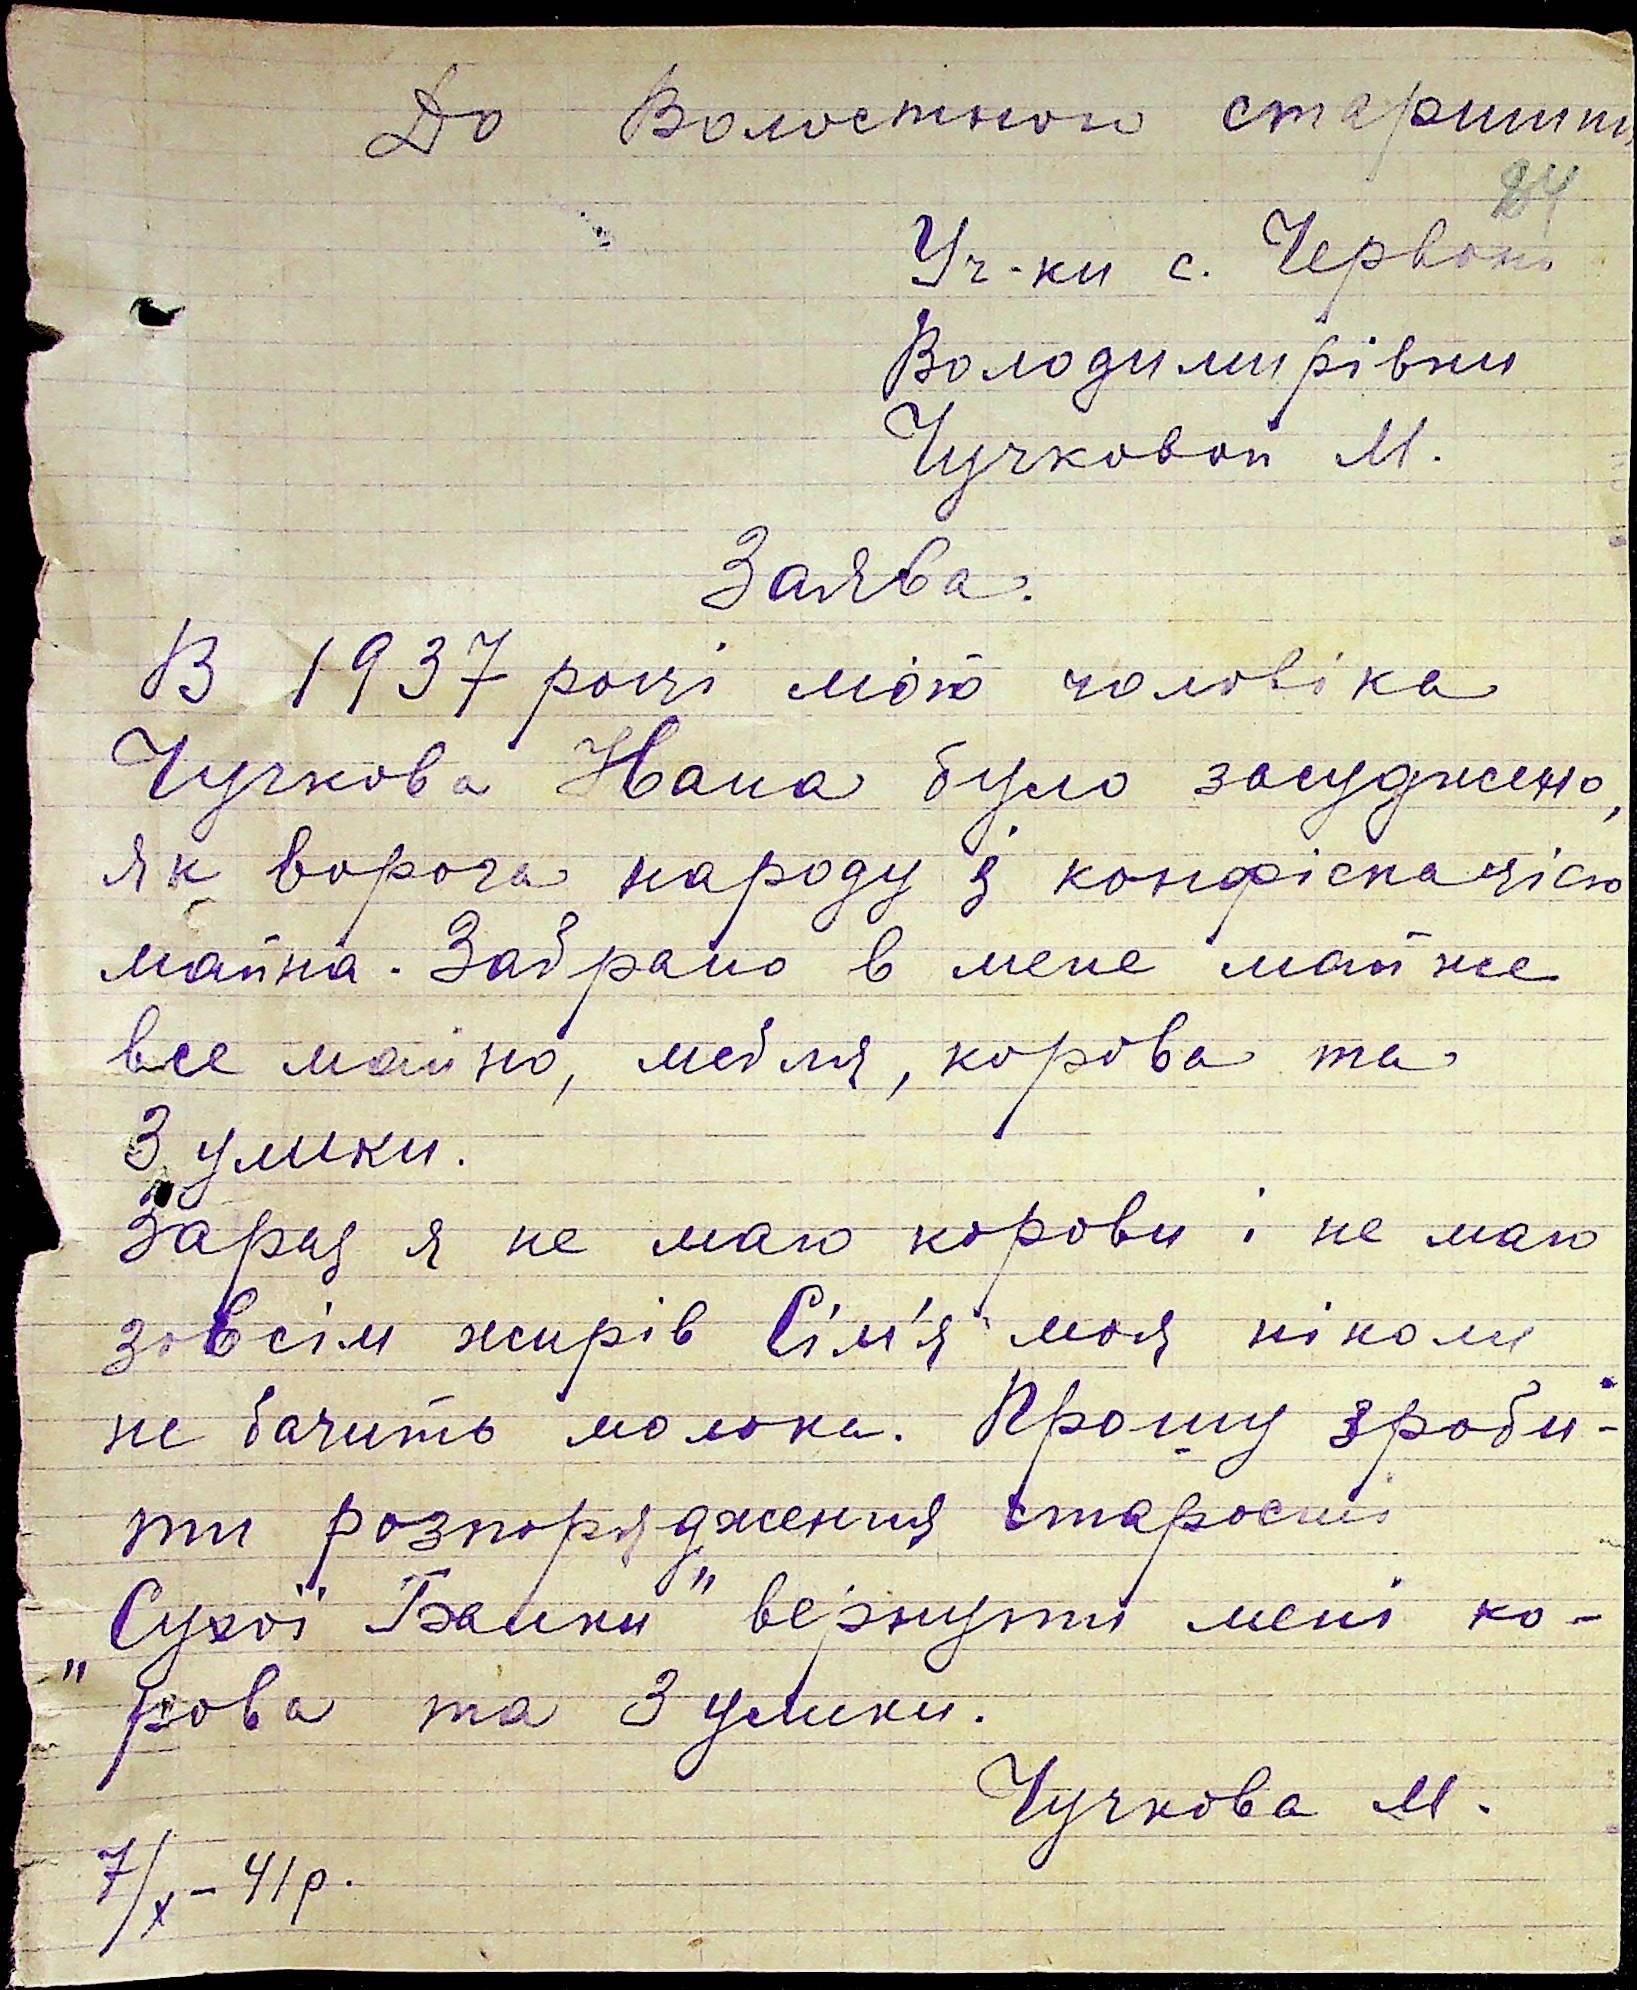 До Волостного старшини
84
Уч-ки с. Червоно
Володимирівки
Чучковой М.
Заява.
В 1937 році мого чоловіка
Чучкова Івана було засуджено,
як ворога народу з конфіскацією
майна. Забрано в мене майже
все майно, мебля, корова та
3 улики.
Зараз я не маю корови і не маю
зовсім жирів Сім'я моя ніколи
не бачить молока. Прошу зроби-
ти розпорядження старості
„Сухої Балки" вернути мені ко-
рова та 3 улики.
Чучкова М.
7/X – 41 р.